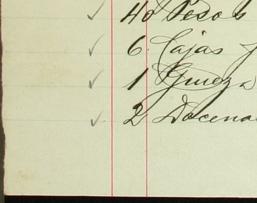 40 Pesos
6 Cajas
1 Grueza
2 Docenas